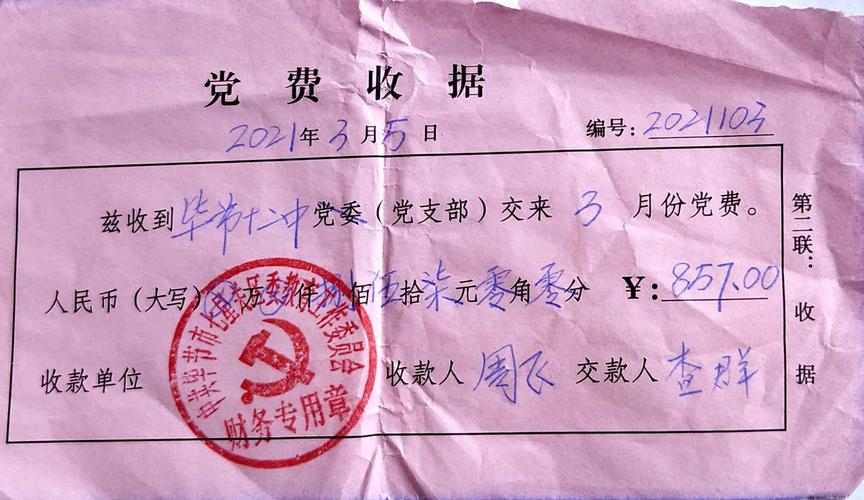 党费收据
2021年3月5日 编号：2021103
兹收到毕节十二中党委（党支部）交来 3 月份党费。
人民币（大写） 万 仟捌佰伍拾柒元零角零分 ￥：857.00
收款单位 收款人 周飞 交款人 查群
中共毕节市七星关区委教育工作委员会
财务专用章
第二联：收据